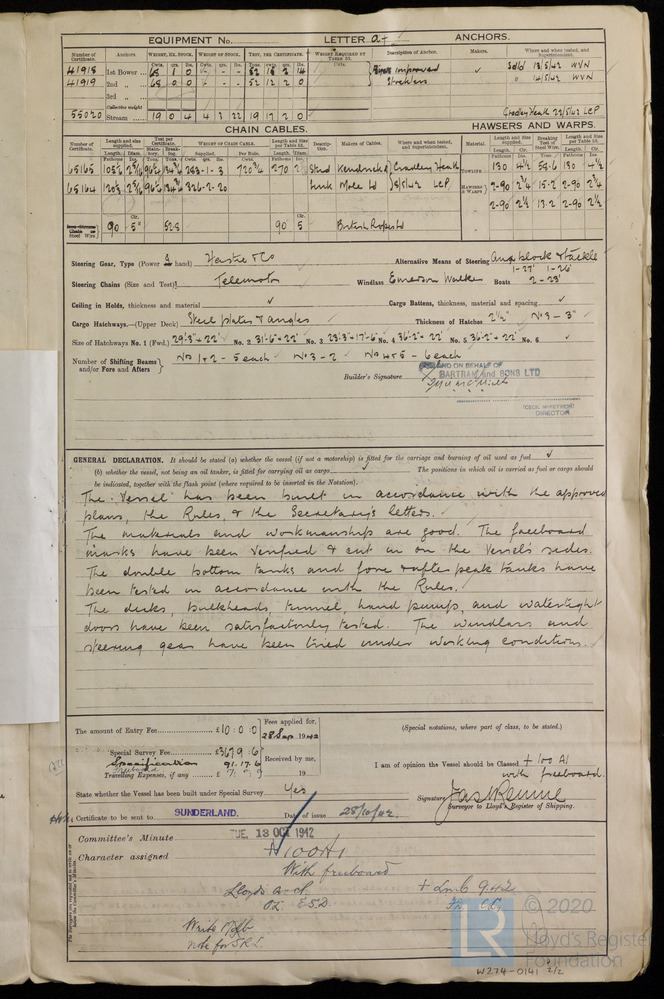 EQUIPMENT No. LETTER a+ ANCHORS.
Number of Certificate. Anchors. WEIGHT, EX. STOCK. WEIGHT OF STOCK. TEST, PER CERTIFICATE. WEIGHT REQUIRED BY TABLE 53. Description of Anchor. Makers. Where and when tested, and Superintendent.
Cwts. qrs. lbs. Cwts. qrs. lbs. Tons. cwts. qrs. lbs. Cwts.
41918 1st Bower 65 1 0 - - - 52 15 2 14 improved ✓ 13/5/42 WVN
41919 2nd „ 65 0 0 - - - 52 12 2 0 Stockless „ 14/5/42 WVN
3rd „
Collective weight
55020 Stream 19 0 4 4 3 22 19 17 2 0 Cradley Heath 22/5/42 LCP
CHAIN CABLES. HAWSERS AND WARPS.
Number of Certificate. Length and size supplied. Test per Certificate. WEIGHT OF CHAIN CABLE. Length and Size per Table 53. Description. Makers of Cables. Where and when tested, and Superintendent. Material. Length and Size supplied. Breaking Test of Steel Wire. Length and Size per Table 53.
Supplied. Per Rule.
65165 283-1-3 720 3/4 270 Stud Kendrick & Cradley Heath TOWLINE 130 4½ 55.6 130 4½
65164 326-2-20 link Mole Ld 8/5/42 LCP HAWSERS & WARPS 2-90 2¾ 15.2 2-90 2¾
2-90 2½ 13.2 2-90 2½
90 5" 528 90 5 British Ropes Ld
Steering Gear, Type (Power & hand) Hastie & Co Alternative Means of Steering Aux block & tackle
1-27' 1-26'
Steering Chains (Size and Test) Telemotor Windlass Emerson Walker Boats 2-23'
Ceiling in Holds, thickness and material ✓ Cargo Battens, thickness, material and spacing ✓
Cargo Hatchways.—(Upper Deck) Steel plates & angles Thickness of Hatches 2½" No 3 - 3"
Size of Hatchways No. 1 (Fwd.) 29'3" × 22' No. 2 31'-6" × 22' No. 3 23'3" × 17'-6" No. 4 36'-2" × 22' No. 5 36'-2" × 22' No. 6 ✓
Number of Shifting Beams and/or Fore and Afters No 1+2 - 5 each No 3 - 2 No 4+5 - 6 each
FOR AND ON BEHALF OF
BARTRAM and SONS LTD
Builder's Signature
DIRECTOR
GENERAL DECLARATION. It should be stated (a) whether the vessel (if not a motorship) is fitted for the carriage and burning of oil used as fuel ✓
(b) whether the vessel, not being an oil tanker, is fitted for carrying oil as cargo ✓ The positions in which oil is carried as fuel or cargo should
be indicated, together with the flash point (where required to be inserted in the Notation).
The Vessel has been built in accordance with the approved
plans, the Rules, & the Secretary's letters.
The materials and workmanship are good. The freeboard
marks have been verified & cut in on the Vessel's sides.
The double bottom tanks and fore & after peak tanks have
been tested in accordance with the Rules.
The decks, bulkheads, tunnel, hand pumps, and watertight
doors have been satisfactorily tested. The windlass and
steering gear have been tried under working conditions.
The amount of Entry Fee £10 : 0 : 0 Fees applied for, 28 Sep 1942 (Special notations, where part of class, to be stated.)
Special Survey Fee £367 9 : 6
Specification 91. 17. 6 Received by me, I am of opinion the Vessel should be Classed + 100 A1
Freeboard with freeboard.
Travelling Expenses, if any £ 7 : 7 : 9 19
State whether the Vessel has been built under Special Survey Yes Signature Jas Rennie
Surveyor to Lloyd's Register of Shipping.
Certificate to be sent to SUNDERLAND. Date of issue 28/10/42
Committee's Minute TUE 13 OCT 1942
Character assigned +100A1
With freeboard
Lloyds a & cp + Lmc 9.42
ESD
Write
note for SRL
© 2020
LR Lloyd's Register
Foundation
W274-0141 2/2